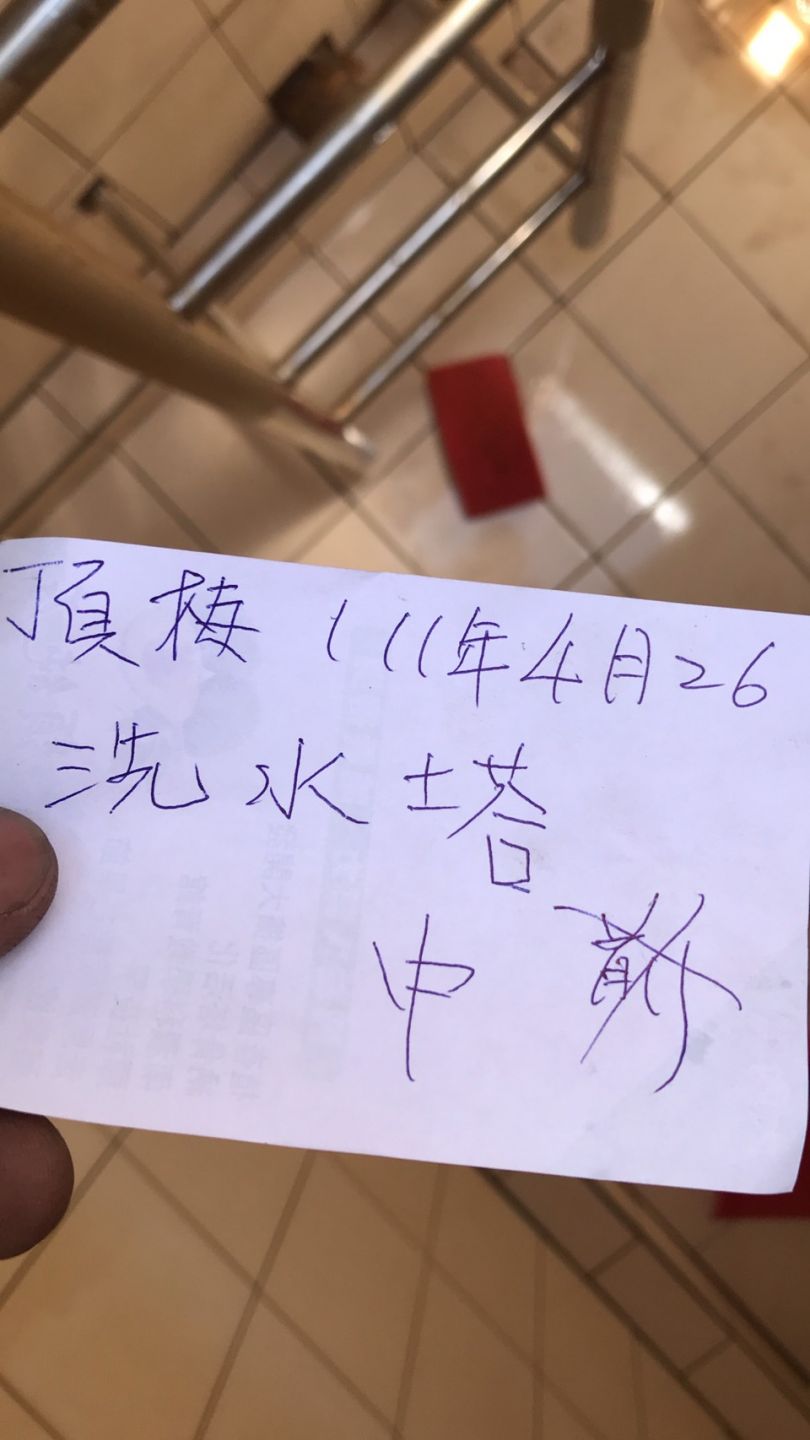 頂梅 111年4月26
洗水塔
中